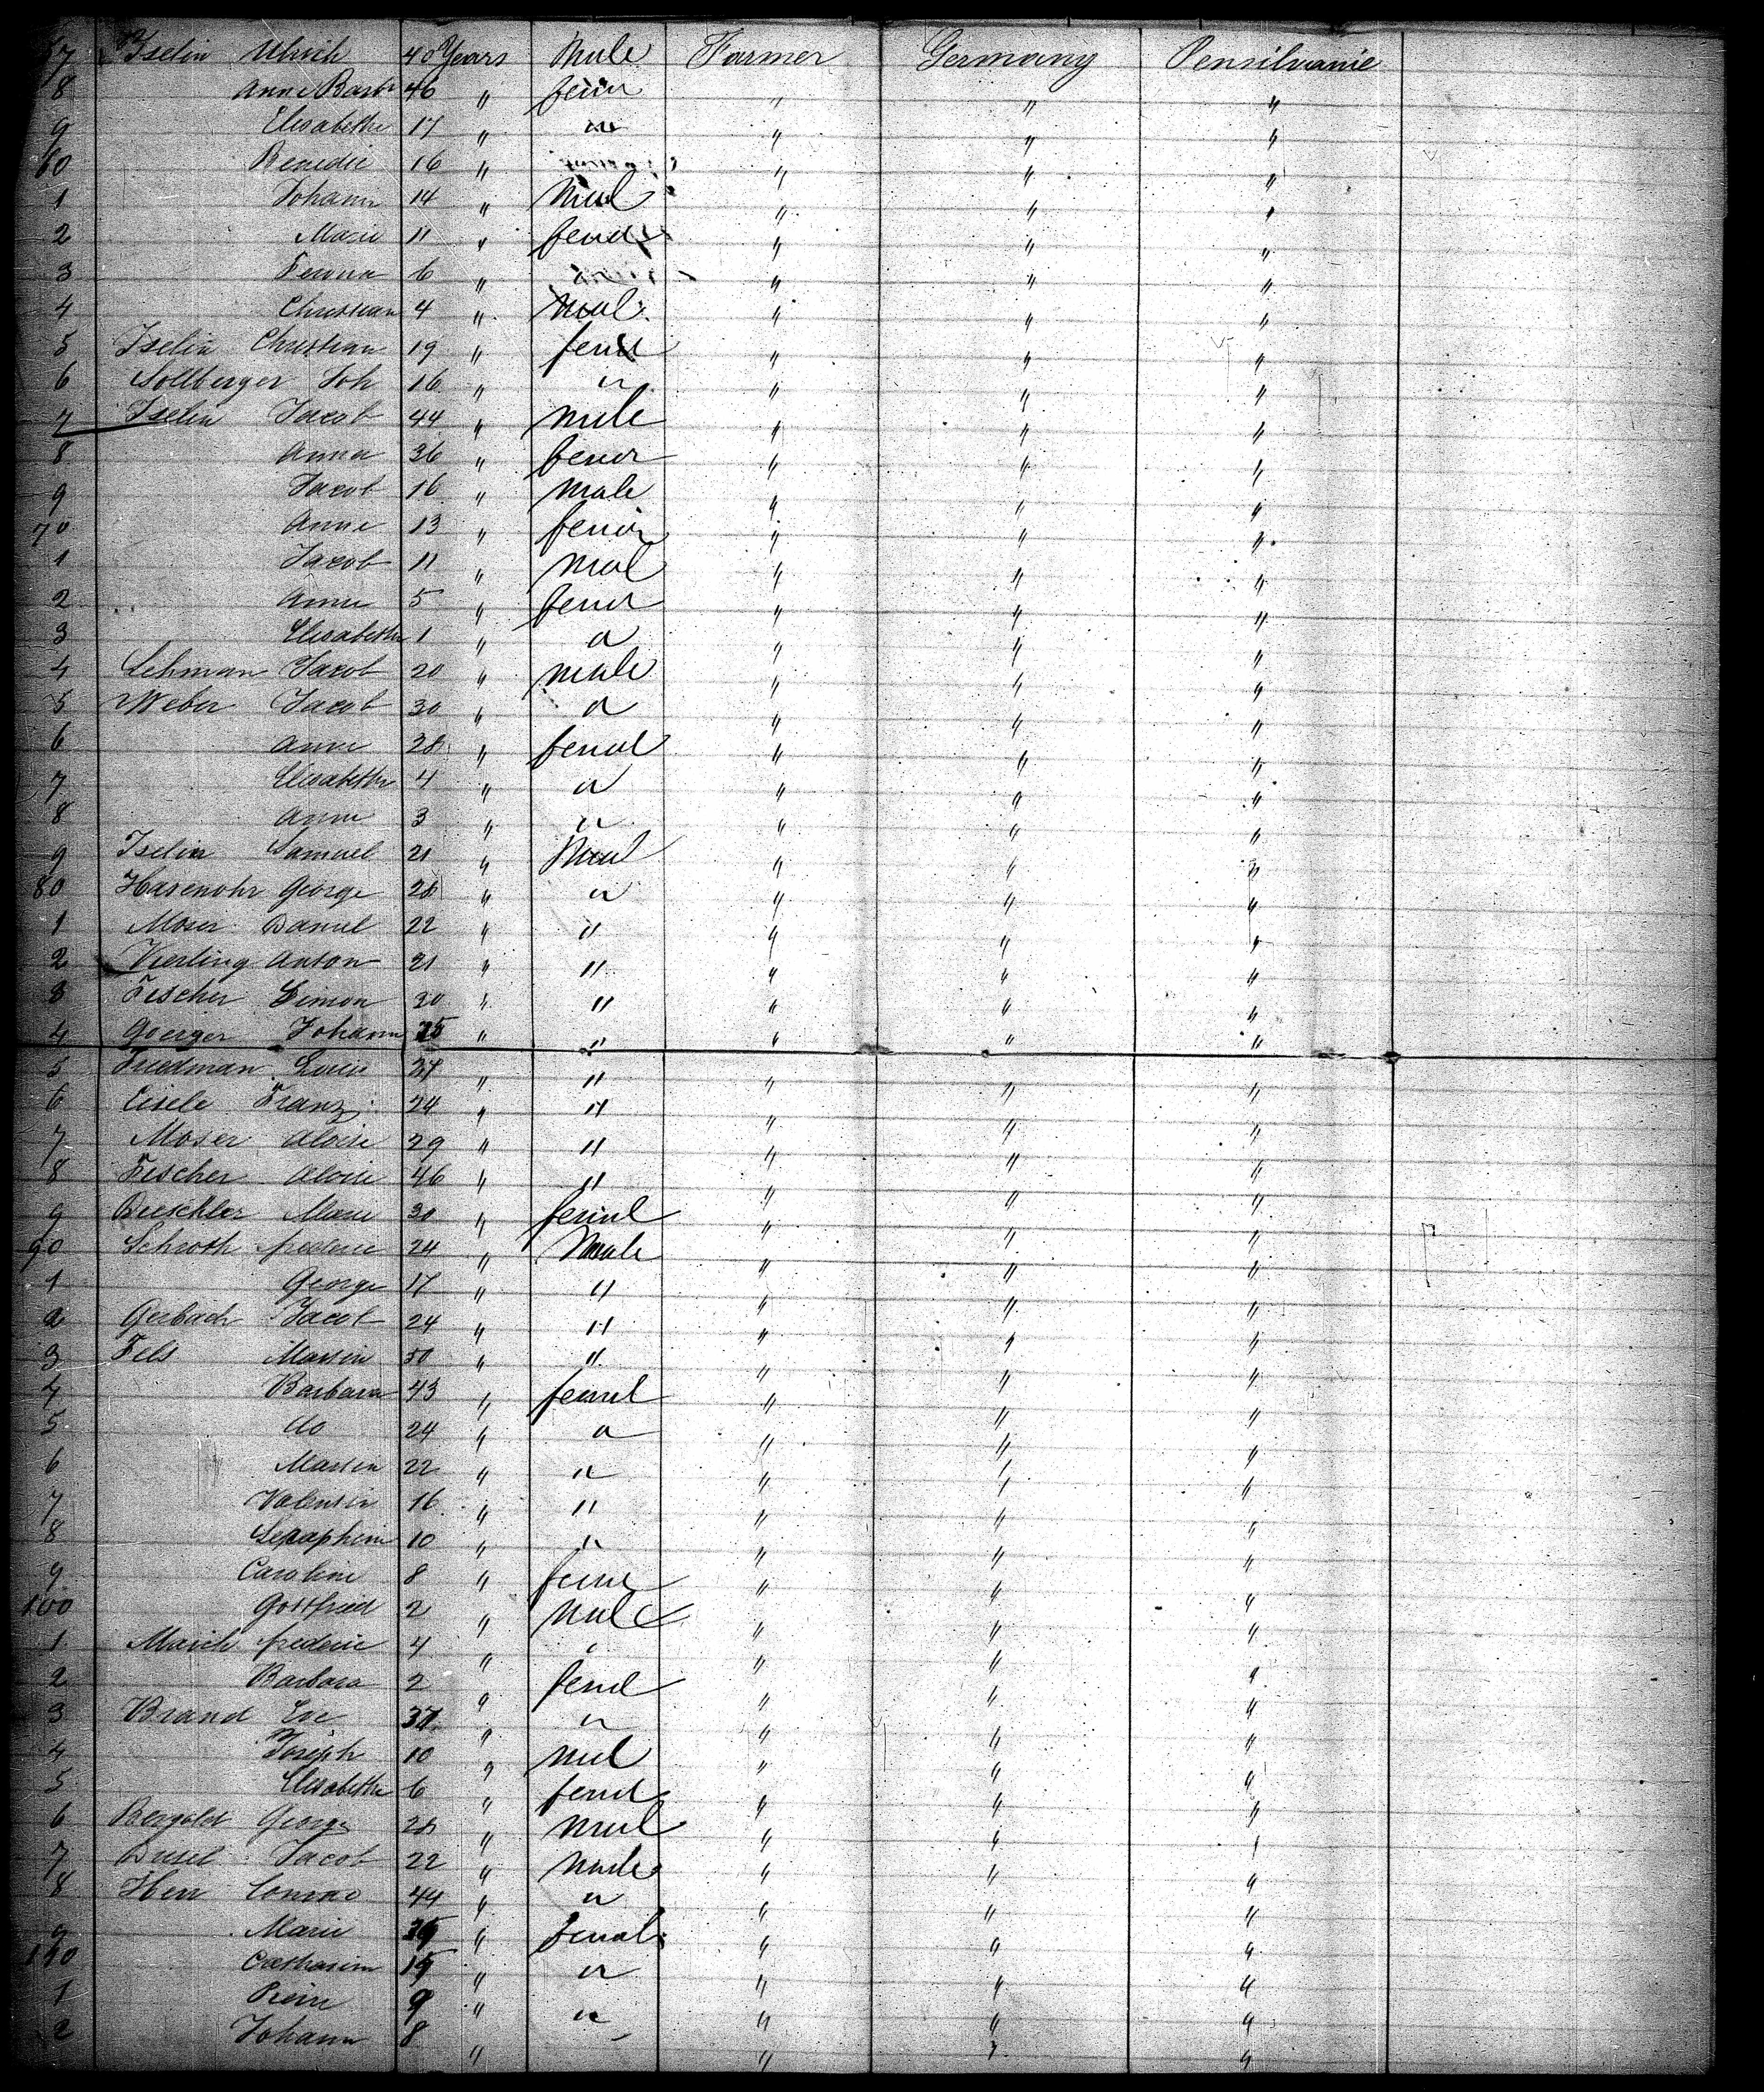 57 Iselin Ulrich 40 Years Male Farmer Germany Pensilvanie
8 Anne Barbr 46 " fem " " "
9 Elisabethe 17 " " " " "
60 Benedic 16 " " " "
1 Johann 14 " Mal " " "
2 Marie 11 " femal " " "
3 6 " " " "
4 Christian 4 " Mal " " "
5 Iselin Christian 19 " " " "
6 Sollberger Joh 16 " " " " "
7 Iselin Jacob 44 " male " " "
8 Anna 36 " femal " " "
9 Jacob 16 " male " " "
70 Anne 13 " femal " " "
1 Jacob 11 " mal " " "
2 Anne 5 " femal " " "
3 Elisabethe 1 " " " " "
4 Lehman Jacob 20 " male " " "
5 Weber Jacob 30 " " " " "
6 Anne 28 " femal " " "
7 Elisabethe 4 " " " " "
8 Anne 3 " " " " "
9 Iselin Samuel 21 " Mal " " "
80 Hasenohr George 28 " " " " "
1 Moser Daniel 22 " " " " "
2 Vierling Anton 21 " " " " "
3 Fischer Simon 20 " " " " "
4 Goerger Johann " " " " "
5 Friedman Louis " " " " "
6 Eisele Franz 24 " " " " "
7 Moser Aloise 29 " " " " "
8 Fischer Aloise 46 " " " " "
9 Marie 30 " femal " " "
90 Schroth frederic 24 " Male " " "
1 George 17 " " " " "
2 Gerbach Jacob 24 " " " " "
3 Fels Martin 50 " " " " "
4 Barbara 43 " femal " " "
5 do 24 " " " " "
6 Martin 22 " " " " "
7 Valentin 16 " " " " "
8 Seraphin 10 " " " " "
9 Caroline 8 " fem " " "
100 Gottfried 2 " male " " "
1 March frederic 4 " " " " "
2 Barbara 2 " femal " " "
3 Brand Eve 37 " " " " "
4 Joseph 10 " mal " " "
5 Elisabethe 6 " femal " " "
6 Bergold George 28 " mal " " "
7 Jacob 22 " male " " "
8 Herr Conrad 44 " " " " "
9 Marie " femal " " "
110 Catharine " " " " "
1 9 " " " " "
2 Johann 8 " " " "